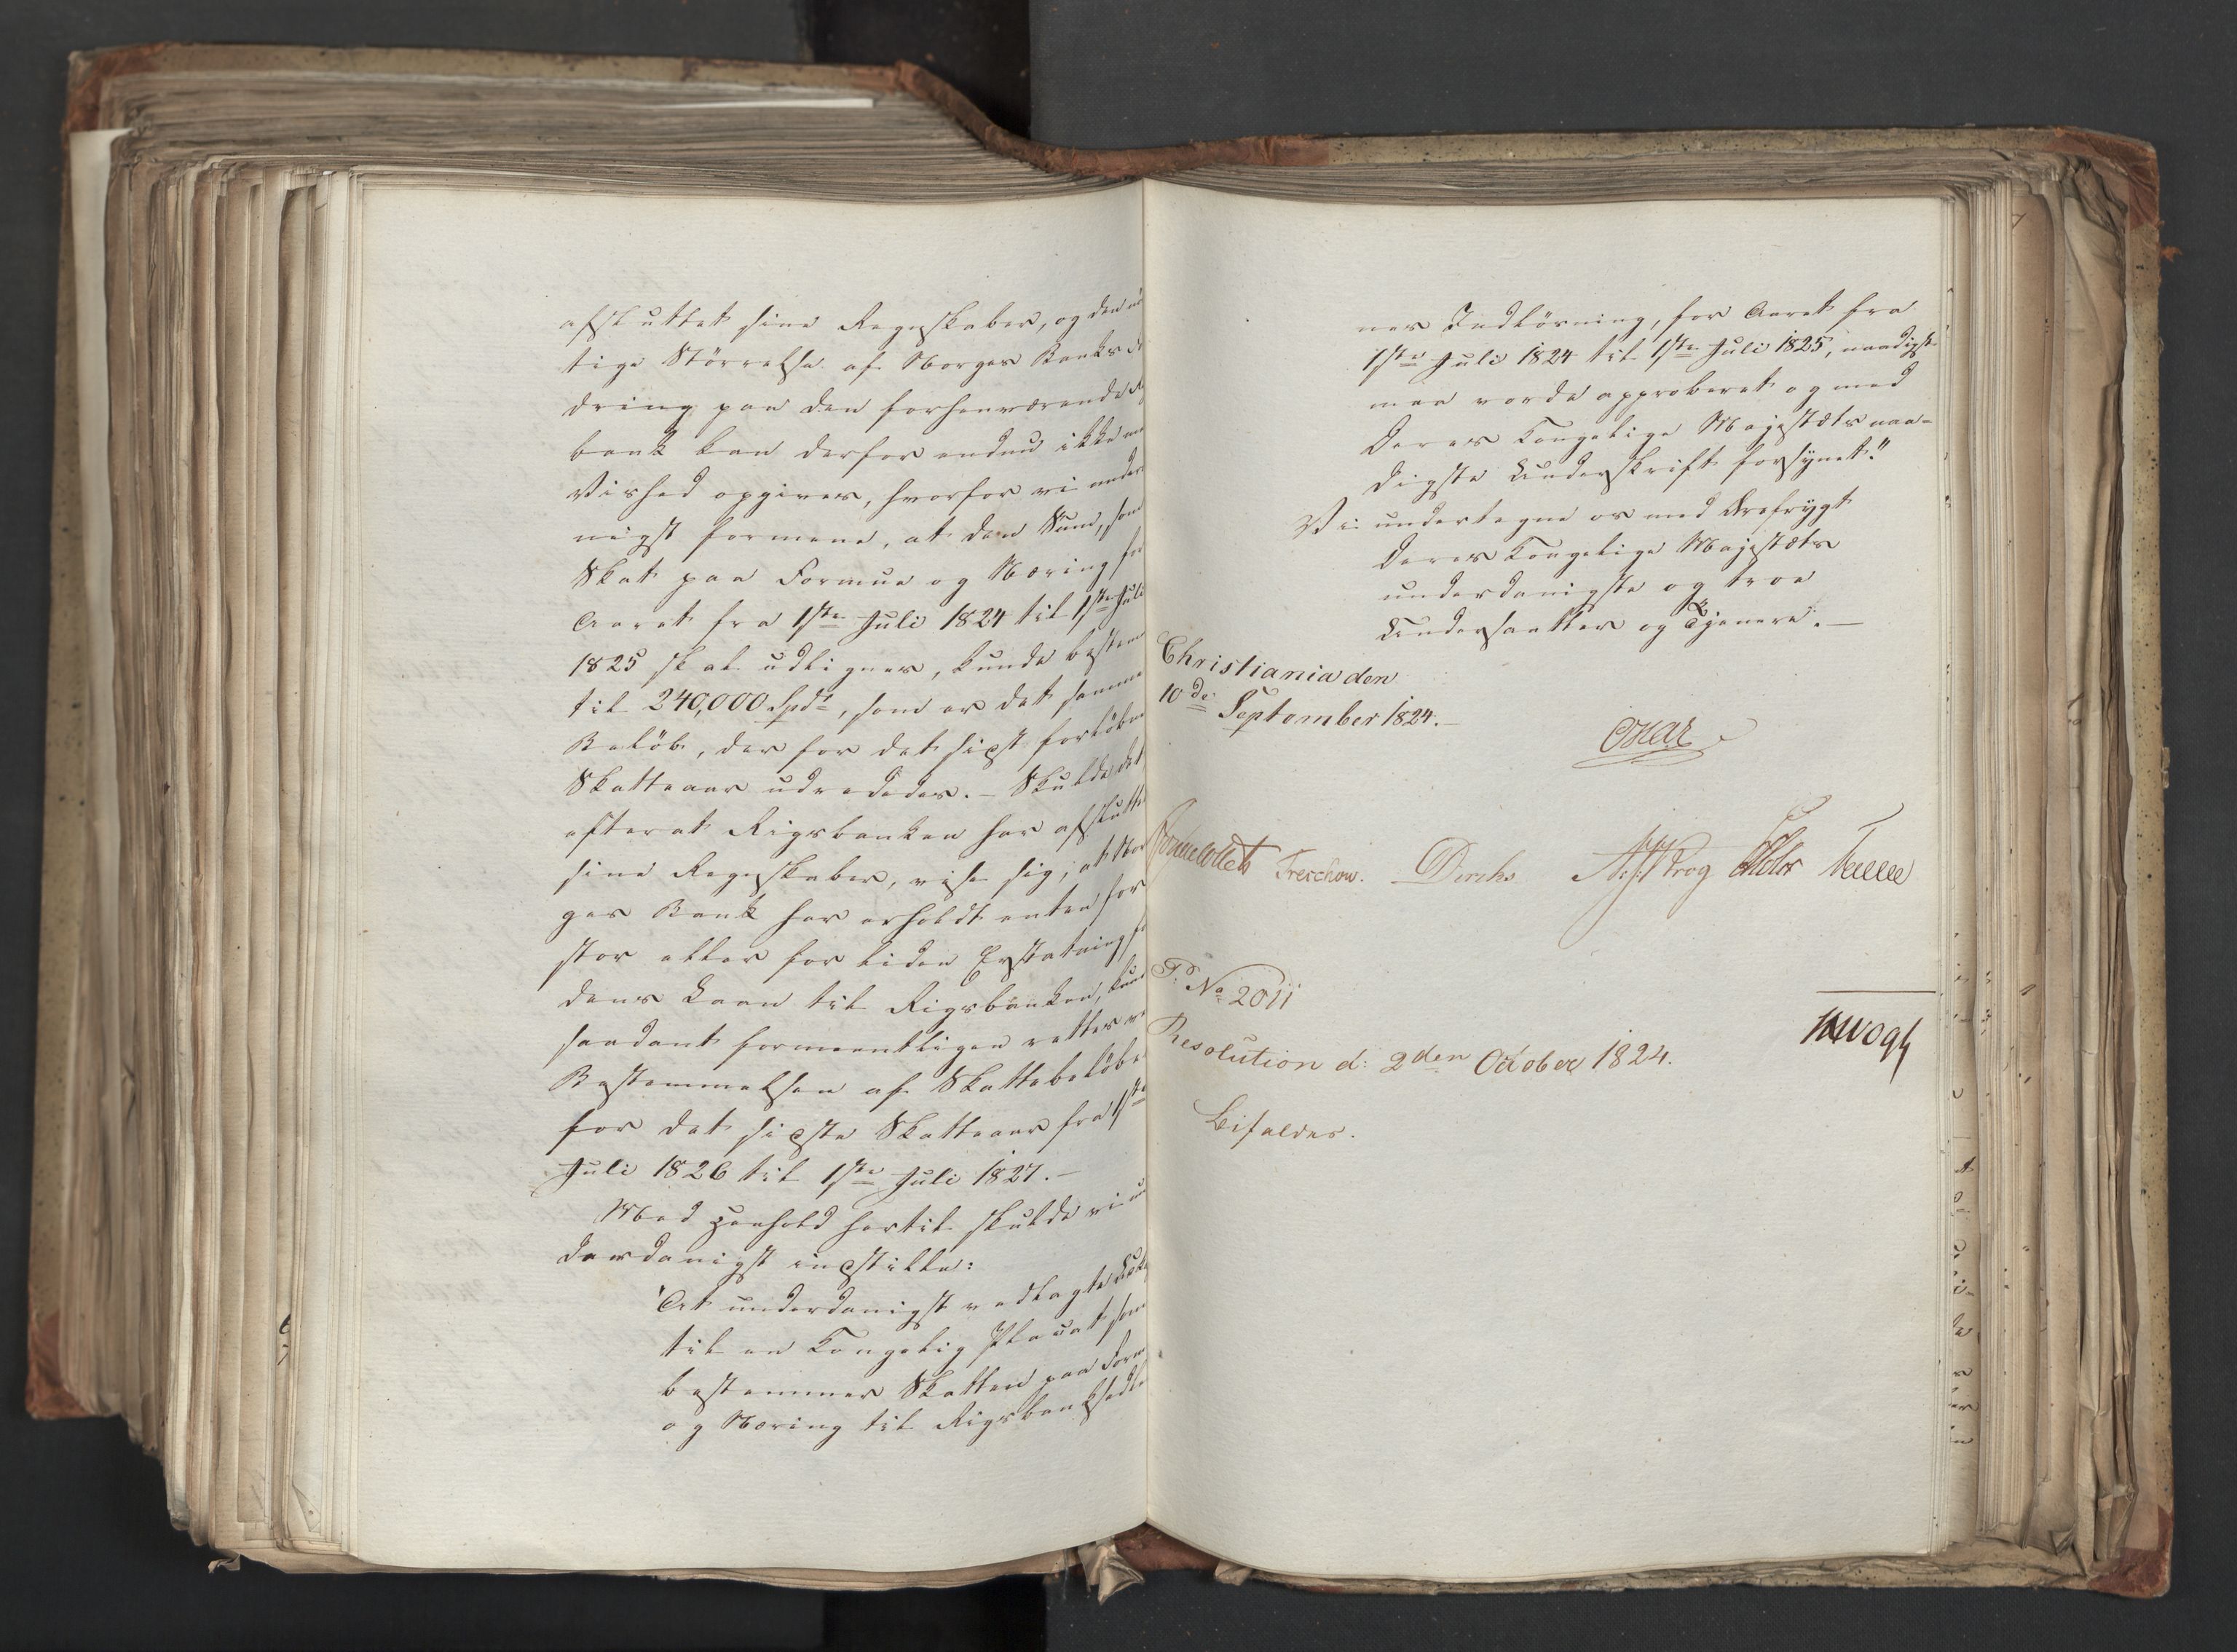 afsluttet sine Regnskaber, og den
tige Störrelse af Norges Banks
dring paa den forhenværende
bank kan derfor endnu ikke
Vished opgives, hvorfor vi under
nigst formene, at den Sum, som
Skat paa Formue og Næring for
Aaret fra 1ste Juli 1824 til 1ste Juli
1825 skal udlignes, kunde bestem
til 240,000 Spdr, som er det samme
Beløb, der for det sidst forløbne
Skatteaar udrededes. – Skulde det
efterat Rigsbanken har afslutte
sine Regnskaber, vise sig, at Nor
ges Bank har erholdt enten for
stor eller for liden Erstatning f
dens Laan til Rigsbanken, kun
saadant formeentligen rettes v
Bestemmelsen af Skattebeløbe
for det sidste Skatteaar fra 1ste
Juli 1826 til 1ste Juli 1827. –
Med Henhold hertil skulde vi un
derdanigst indstille:
"At underdanigst vedlagte Udk
til en Kongelig Placat som
bestemmer Skatten paa Form
og Næring til Rigsbanksedle
nes Indløsning, for Aaret fra
1ste Juli 1824 til 1ste Juli 1825, naadigst
maa vorde approberet og med
Deres Kongelige Majestæts naa-
digste Underskrift forsynet."
Vi undertegne os med Ærefrygt
Deres Kongelige Majestæts
underdanigste og troe
Undersaatter og Tjenere. –
Christiania den
10de September 1824. –
Oscar
Jonas Collett Treschow. Diriks Krog Holst
P. No 2011
Vogt
Resolution d: 2den October 1824.
Bifaldes.